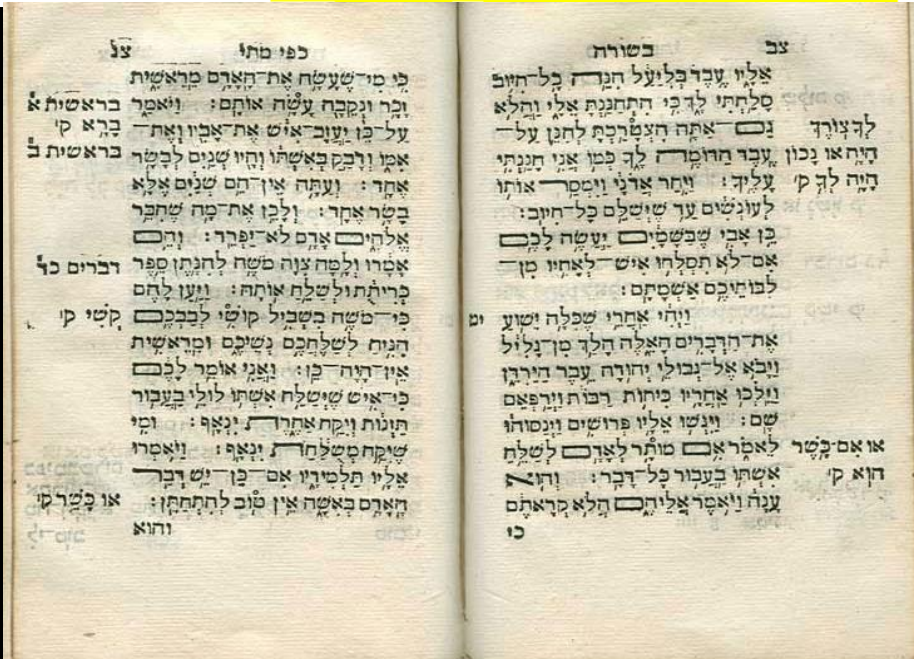 צב
בשורה
אליו עבד בליעל חנה כל־חיוב
סלחתי לך כי התחננת אלי והלא
גם־אתה הצטרכת לחנן על־
עבד הדומה לך כמו אני חננתי
עליך: ויחר אדני וימסר אותו
לעונשים עד שישלם כל־חיוב:
כן אבי שבשמים יעשה לכם
אם־לא תסלחו איש־לאחיו מן־
לבותיכם אשמתם:
ויהי אחרי שכלה ישוע
את־הדברים האלה הלך מן־גליל
ויבא אל־גבולי יהודה עבר הירדן
וילכו אחריו כיתות רבות וירפאם
שם: ויגשו אליו פרושים וינסוהו
לאמר אם מותר לאדם לשלח
אשתו בעבור כל־דבר: והוא
ענה ויאמר אליהם הלא קראתם
כי
לך צורך
היה או נכון
היה לך קי
יט
או אם־כשר
הוא קי
כפי מתי
צג
כי מי־שעשה את־האדם מראשית
זכר ונקבה עשה אותם: ויאמר
על־כן יעזוב־איש את־אביו ואת־
אמו ודבק באשתו והיו שנים לבשר
אחד: ועתה אין־הם שנים אלא
בשר אחד: ולכן את־מה שחבר
אלהים אדם לא־יפרד: והם
אמרו ולמה צוה משה להנתן ספר
כריתת ולשלח אותה: ויען להם
כי־משה בשביל קושי לבבכם
הניח לשלחכם נשיכם ומראשית
אין־היה־כן: ואני אומר לכם
כי־איש שישלח אשתו לולי בעבור
הזנות ויקח אחרת ינאף: ומי
שיקח משלחת ינאף: ויאמרו
אליו תלמידיו אם־כן־יש דבר
האדם באשה אין טוב להתחתן:
והוא
בראשית א
ברא קי
בראשית ב
דברים כד
קשי קי
או כשר קי